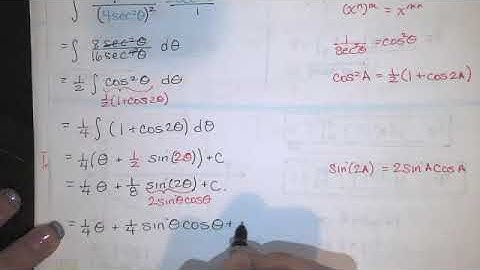 ∫ 1/(4sec²θ)² 1
= ∫ 8sec²θ/16sec⁴θ dθ
= 1/2 ∫ cos²θ dθ
1/2(1+cos2θ)
= 1/4 ∫ (1 + cos2θ) dθ
= 1/4(θ + 1/2 sin(2θ)) + C
= 1/4 θ + 1/8 sin(2θ) + C.
2sinθcosθ
= 1/4 θ + 1/4 sinθcosθ +
(xⁿ)ᵐ = xᵐⁿ
cos²A = 1/2(1 + cos2A)
sin(2A) = 2sinAcosA